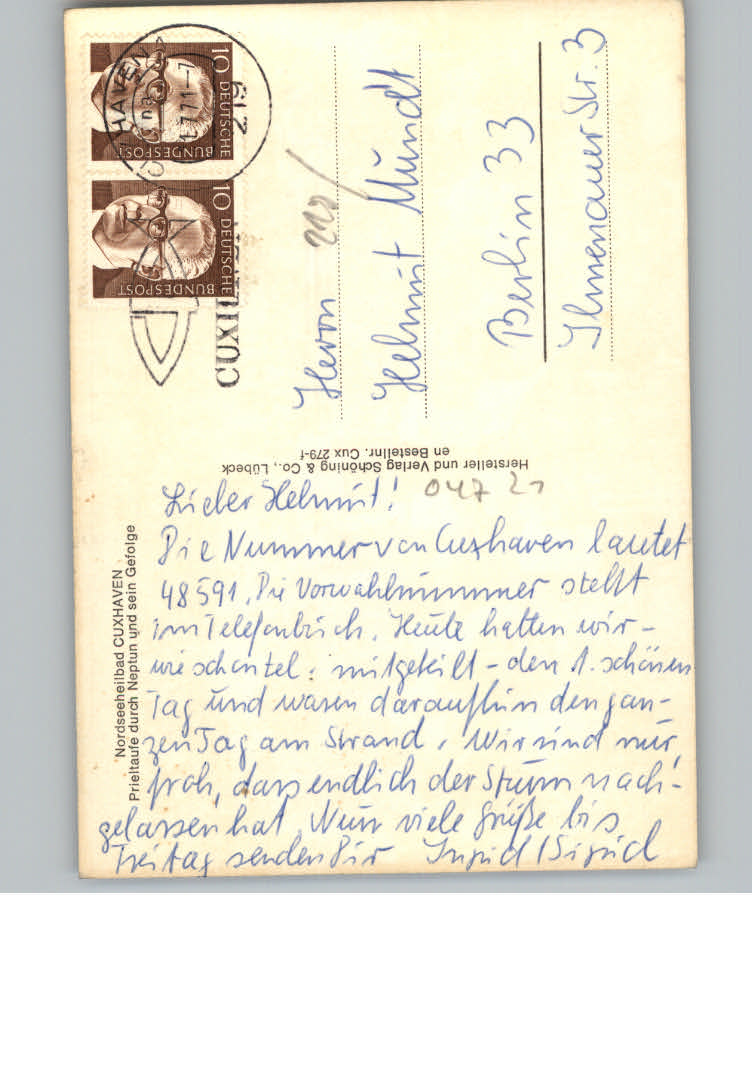 Nordseeheilbad CUXHAVEN
Prieltaufe durch Neptun und sein Gefolge
Hersteller und Verlag Schöning & Co., Lübeck
en Bestellnr. Cux 279-f
10 DEUTSCHE BUNDESPOST
10 DEUTSCHE BUNDESPOST
219
HAVEN
1.7.71-7
Herrn
Helmut Mundt
Berlin 33
Ilmenauer Str. 3
Lieber Helmut! 047 21
Die Nummer von Cuxhaven lautet
48591. Die Vorwahlnummer steht
im Telefonbuch. Heute hatten wir -
wie schon tel. mitgeteilt - den 1. schönen
Tag und waren daraufhin den gan-
zen Tag am Strand. Wir sind nur
froh, dass endlich der Sturm nach-
gelassen hat. Nun viele Grüße bis
Freitag senden Dir Ingrid / Sigrid